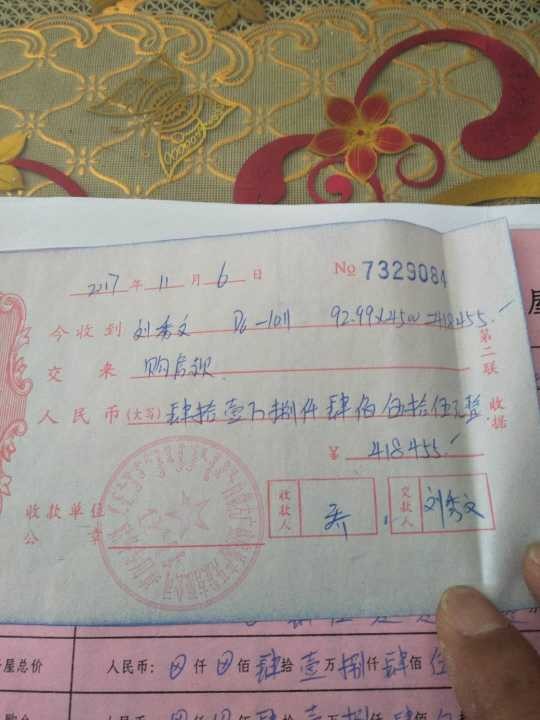 2017 年 11 月 6 日 № 7329084
今收到 刘秀文 D6-1011 92.99×4500=418455.
交来 购房款
人民币(大写) 肆拾壹万捌仟肆佰伍拾伍元整
第二联 收据
¥ 418455.
收款单位公章
收款人 乔
交款人 刘秀文
屋总价 人民币: 仟 佰 肆拾 壹万 捌仟 肆佰 伍